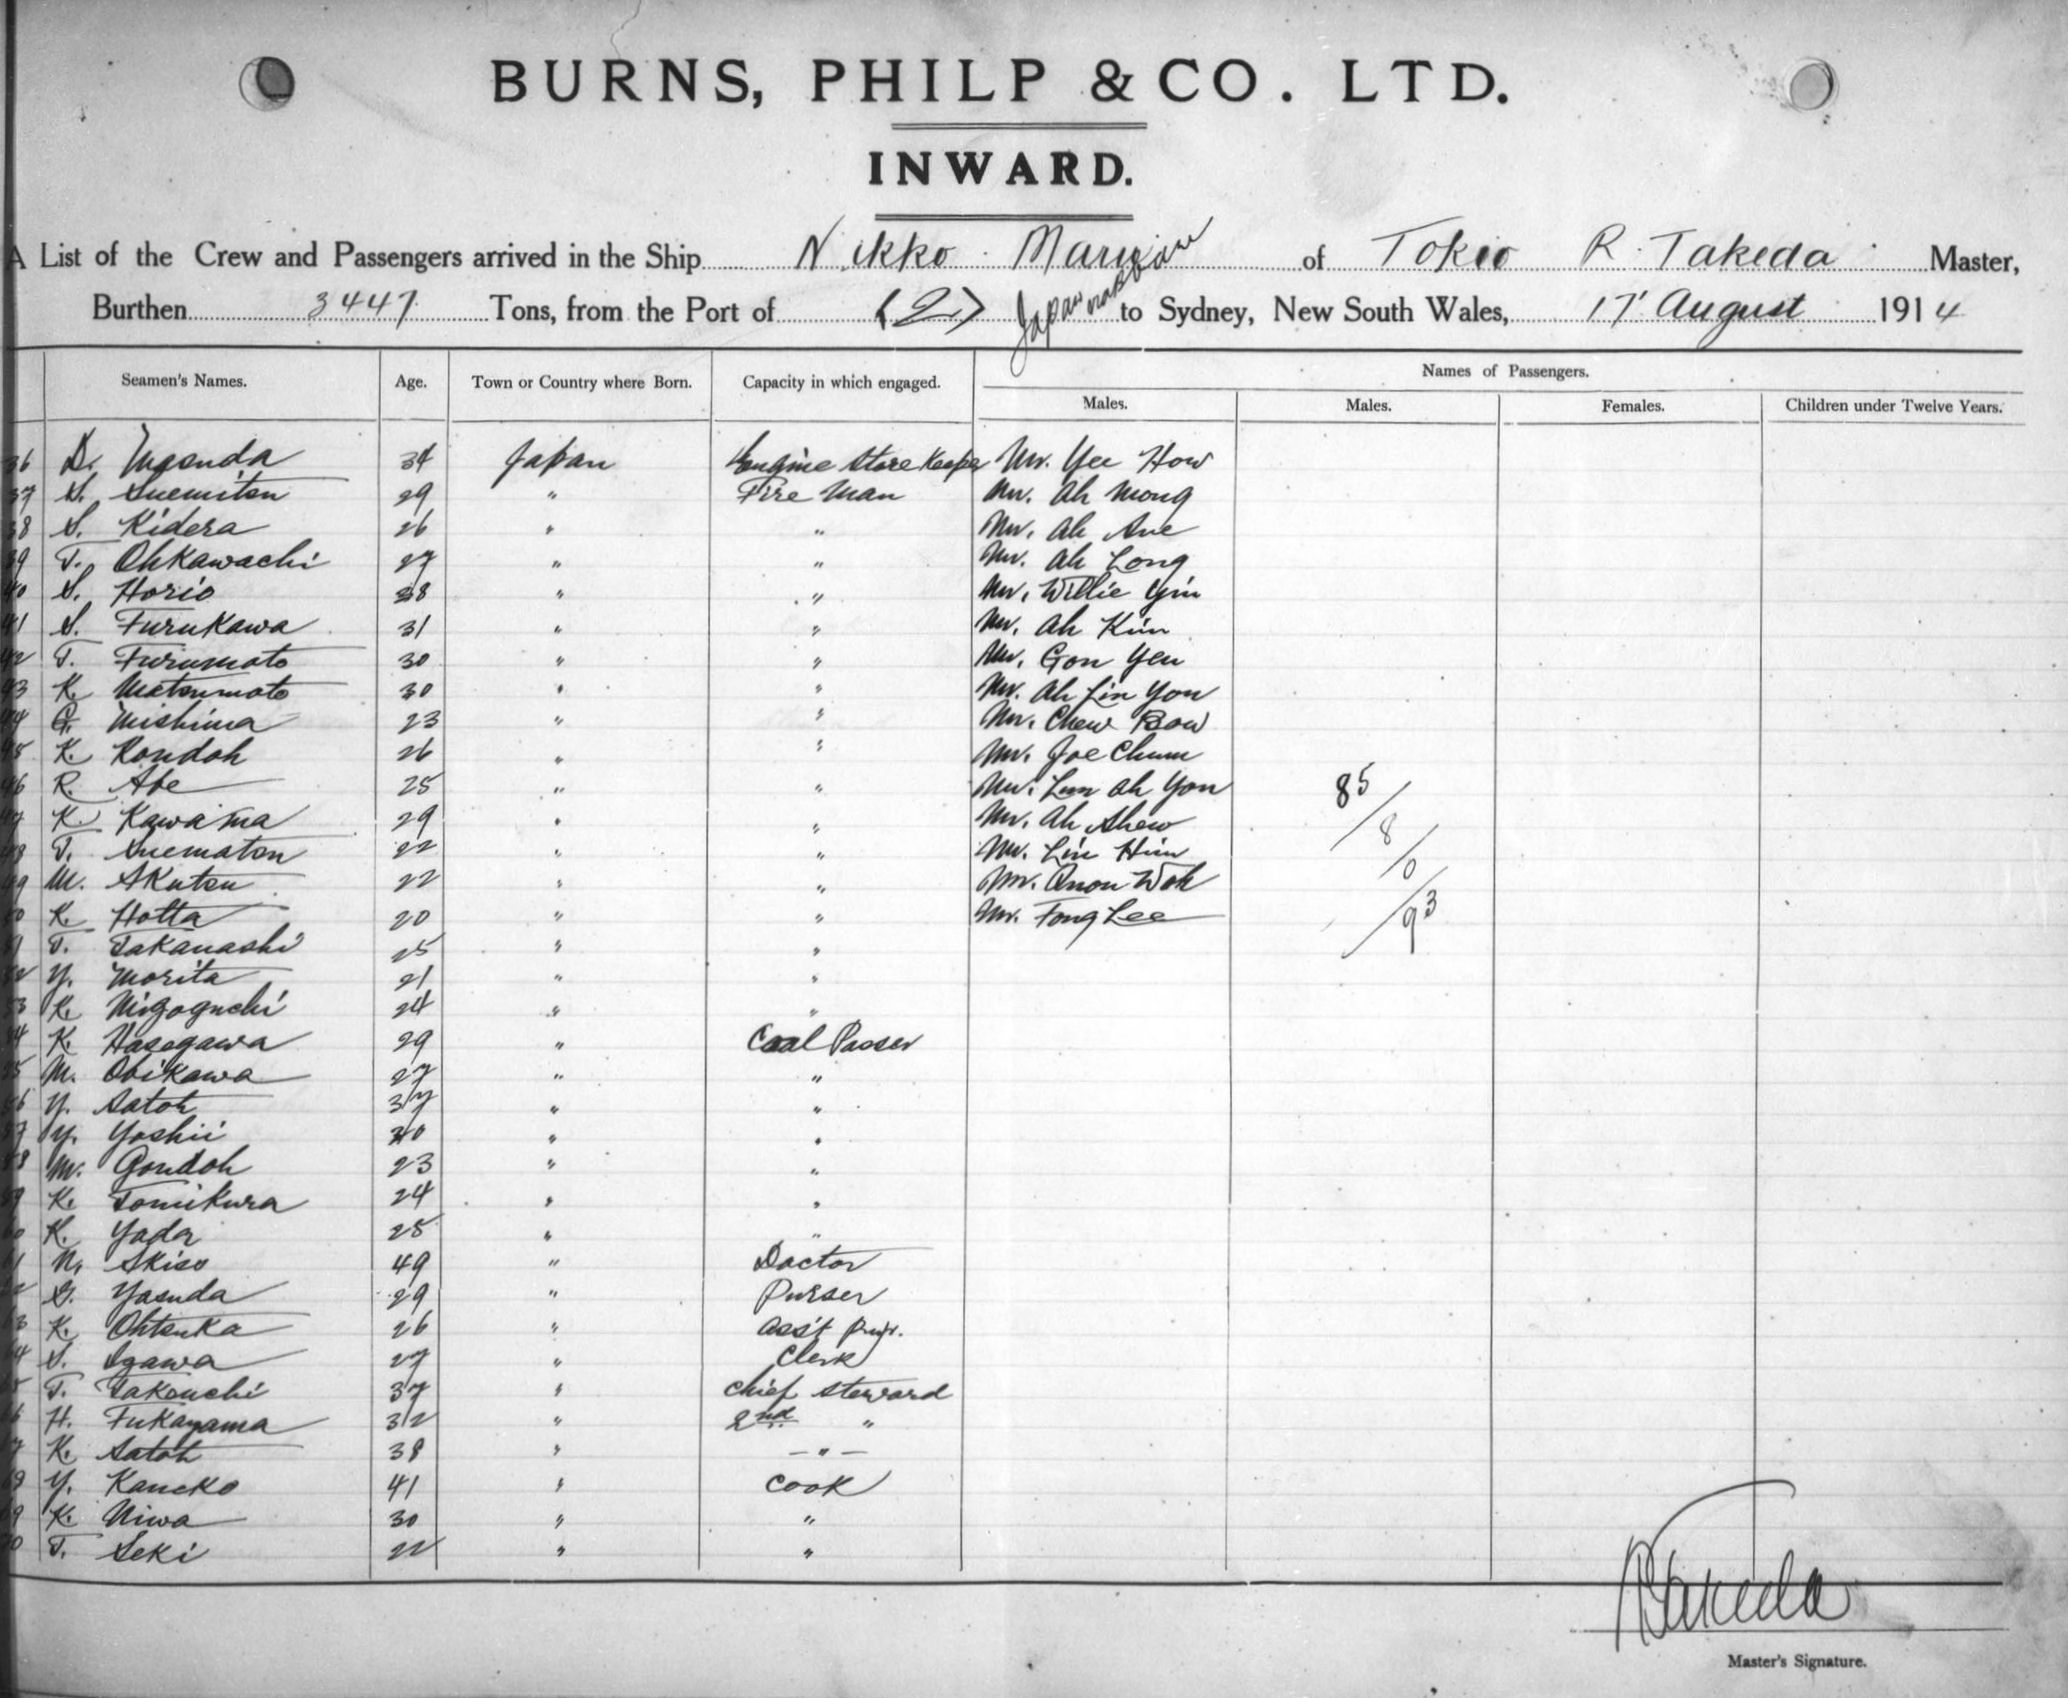 BURNS, PHILP & CO. LTD.
INWARD.
A List of the Crew and Passengers arrived in the Ship Nikko Maru of Tokio R. Takeda Master,
Burthen 3447 Tons, from the Port of (2) Japan to Sydney, New South Wales, 17 August 1914
Names of Passengers.
Seamen's Names. Age. Town or Country where Born. Capacity in which engaged. Males. Males. Females. Children under Twelve Years.
36 D. Masuda 34 Japan Engine Store Keeper Mr. Yee How
37 S. Suemitsu 29 " Fire Man Mr. Ah Mong
38 S. Kidera 26 " " Mr. Ah
39 T. Ohkawachi 27 " " Mr. Ah Long
40 S. Horio 28 " " Mr. Willie
41 S. Furukawa 31 " " Mr. Ah Kim
42 T. Furumoto 30 " " Mr. Gon Yen
43 K. Matsumoto 30 " " Mr. Ah Lin You
44 G. Mishima 23 " " Mr. Chew Bow
45 K. Kondoh 26 " " Mr. Joe Chum
46 R. Abe 25 " " Mr. Lum Ah You 85/
47 K. Kawama 29 " " Mr. Ah Shew 8/
48 T. Suematsu 22 " " Mr. Lin Him 0
49 M. Akutsu 22 " " Mr. Wok
50 K. Hotta 20 " " Mr. Fong Lee /93
51 T. Takanashi 25 " "
52 Y. Morita 21 " "
53 K. Migoguchi 24 " "
54 K. Hasegawa 29 " Coal Passer
55 M. Obikawa 27 " "
56 Y. Satoh 37 " "
57 Y. Yoshii 30 " "
58 M. Gondoh 23 " "
59 K. Tomikura 24 " "
60 K. Yada 25 " "
61 N. Akiso 49 " Doctor
62 G. Yasuda 29 " Purser
63 K. Ohtsuka 26 " Ass't Pur.
64 S. Igawa 27 " Clerk
65 T. Takeuchi 37 " Chief Steward
66 H. Fukayama 32 " 2nd "
67 K. Satoh 38 " - " -
68 Y. Kaneko 41 " Cook
69 K. Niwa 30 " "
70 T. Seki 22 " "
R Takeda
Master's Signature.